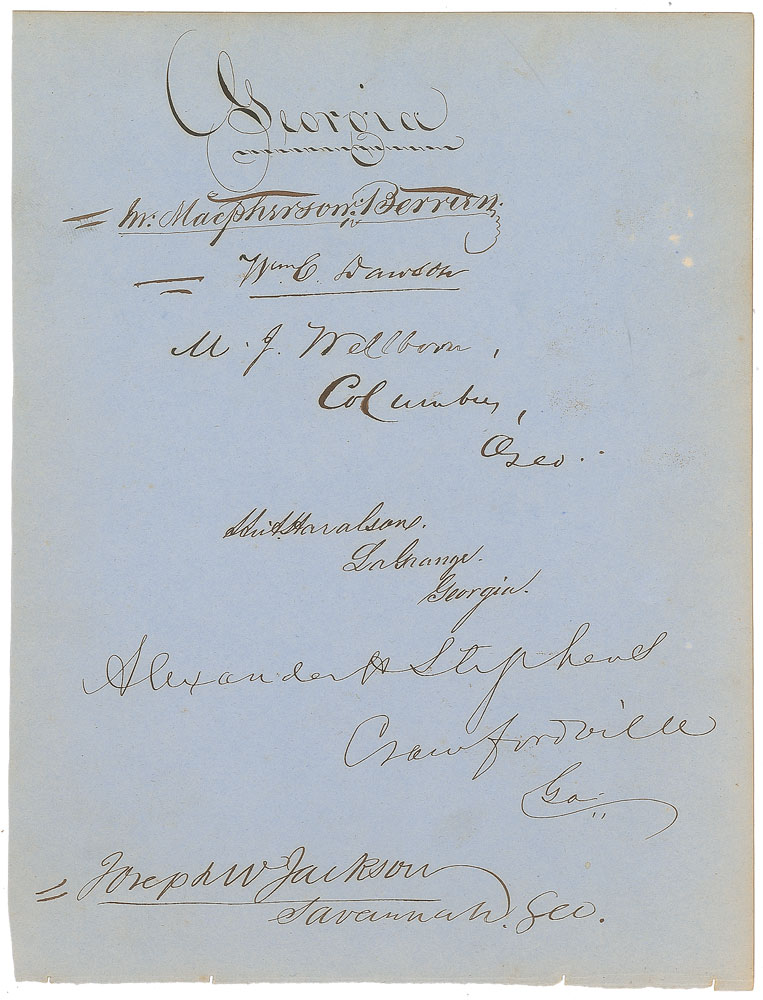 Georgia
Jn: Macpherson Berrien.
Wm. C. Dawson
M. J. Wellborn,
Columbus,
Geo.
Haralson.
LaGrange.
Georgia.
Alexander H Stephens
Crawfordville
Ga.
Joseph W Jackson
Savannah. Geo.